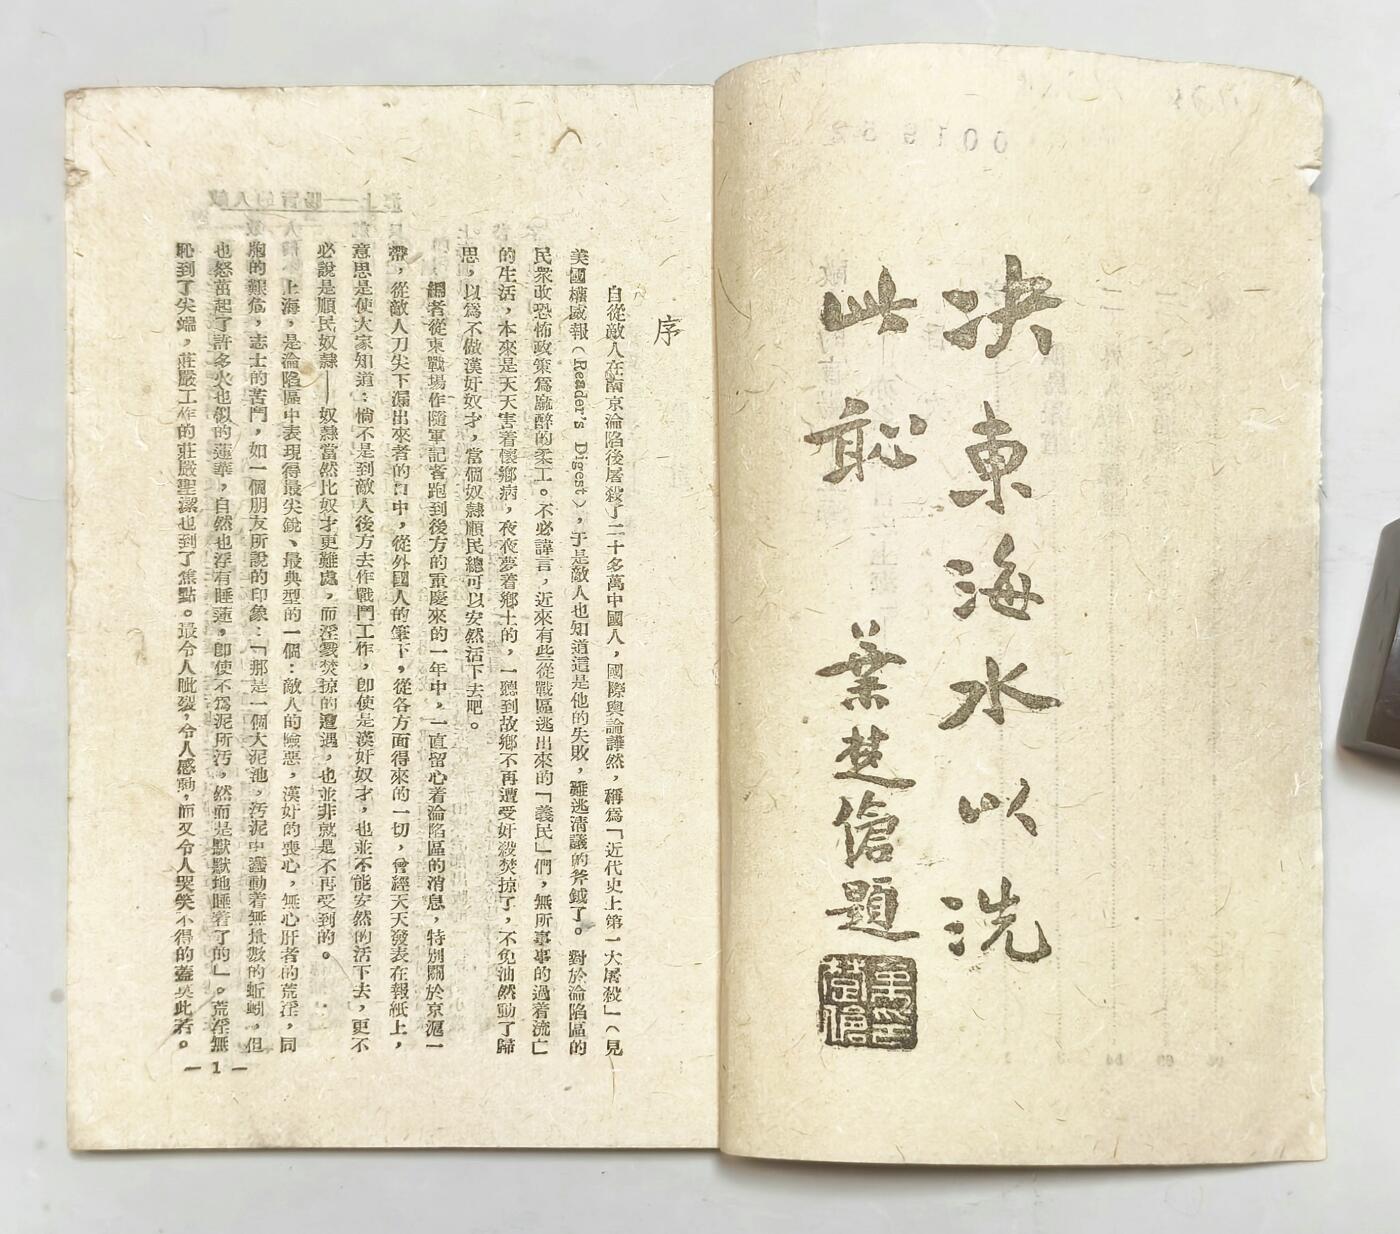 決東海水以洗
此恥
葉楚傖題
序
自從敵人在南京淪陷後屠殺了二十多萬中國人，國際輿論譁然，稱爲「近代史上第一大屠殺」（見
美國權威報（Reader's Digest），于是敵人也知道這是他的失敗，難逃清議的斧鉞了。對於淪陷區的
民衆改恐怖政策爲麻醉的柔工。不必諱言，近來有些從戰區逃出來的「義民」們，無所事事的過着流亡
的生活，本來是天天害着懷鄉病，夜夜夢着鄉土的，一聽到故鄉不再遭受奸殺焚掠了，不免油然動了歸
思，以爲不做漢奸奴才，當個奴隸順民總可以安然活下去吧。
編者從東戰場作隨軍記者跑到後方的重慶來的一年中，一直留心着淪陷區的消息，特別關於京滬一
帶，從敵人刀尖下漏出來者的口中，從外國人的筆下，從各方面得來的一切，曾經天天發表在報紙上，
意思是使大家知道：倘不是到敵人後方去作戰鬥工作，卽使是漢奸奴才，也並不能安然的活下去，更不
必說是順民奴隸——奴隸當然比奴才更難處，而淫戮焚掠的遭遇，也並非就是不再受到的。
上海，是淪陷區中表現得最尖銳、最典型的一個：敵人的險惡，漢奸的喪心，無心肝者的荒淫，同
胞的艱危，志士的苦鬥，如一個朋友所說的印象：「那是一個大泥池，污泥中蠢動着無量數的蚯蚓，但
也怒茁起了許多火也似的蓮華，自然也浮有睡蓮，卽使不爲泥所污，然而是默默地睡着了的」。荒淫無
恥到了尖端，莊嚴工作的莊嚴聖潔也到了焦點。最令人眦裂，令人感動，而又令人哭笑不得的蓋莫此若。
— 1 —